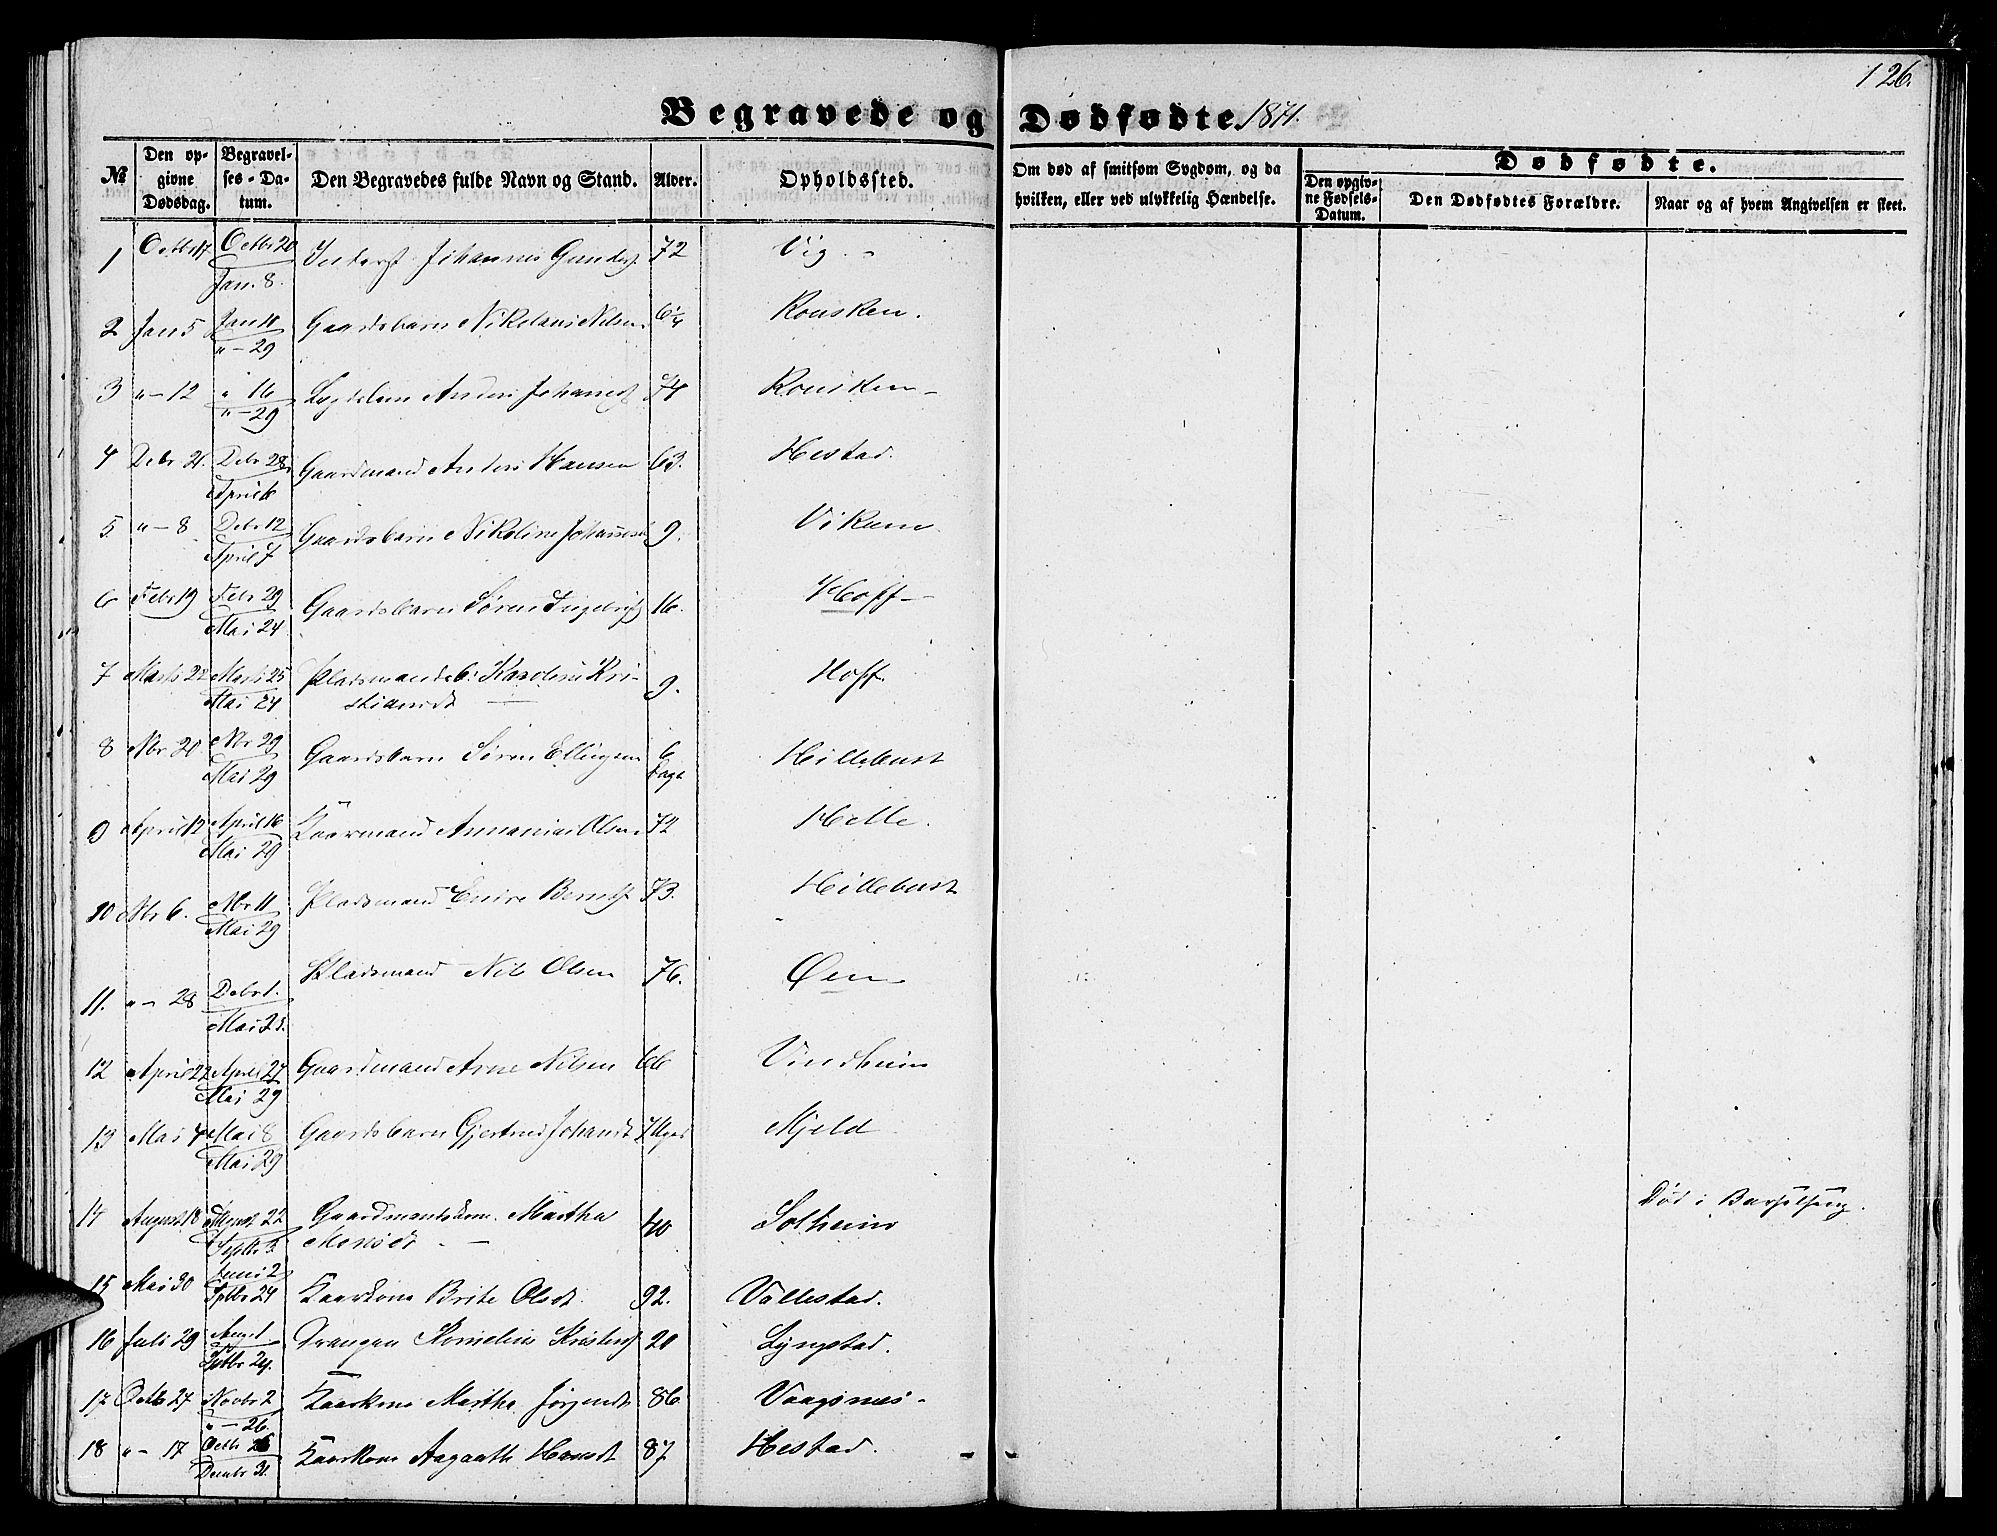 126.
Begravede og Dødfødte 1871.
№
Den opgivne Dødsdag.
Begravelses-Datum.
Den Begravedes fulde Navn og Stand.
Alder.
Opholdssted.
Om død af smitsom Sygdom, og da hvilken, eller ved ulykkelig Hændelse.
Dødfødte.
Den opgivne Fødsels-Datum.
Den Dødfødtes Forældre.
Naar og af hvem Angivelsen er skeet.
1 Octbr 17 Octbr 20 Johannes 72 Vig.
Jan. 8.
2 Jan 5 Jan 10 Gaardsbarn Nikolaus Nilsen Rousken.
" - 29
3 " - 12 " 16 Anders Johannest 74 Rousken
" - 29
4 Debr 21. Debr 28 Gaardmand Anders Hansen 63. Hestad.
April 6
5 " - 8 Debr 12 Gaardsbarn Nikoline Johannesd 9. Vikum
April 7
6 Febr 19 Febr 29 Gaardsbarn Søren Ingebrigt 16. Hoff
Mai 24
7 Marts 22 Marts 25 Pladsmandsb. Karoline Kri- 9. Hoff
Mai 24 stiansdt
8 Nbr 21 Nbr 29 Gaardsbarn Søren Ellingsen 6 Hillebust
Mai 29 Dage
9 April 12 April 16 Kaarmand Annanias Olsen 72 Helle.
Mai 29
10 Nbr 6. Nbr 11 Pladsmand Endre Berntst 73. Hillebust
Mai 29
11. " - 28 Debr 1. Pladsmand Nils Olsen 76. Øen
Mai 23.
12 April 22 April 27 Gaardmand Arne Nilsen 66 Vindheim
Mai 29
13 Mai 4 Mai 8 Gaardsbarn Gjertrud Johansdt Mjeld
Mai 29
14 August 18 August 22 Gaardmandskone Martha 40 Solheim Død i Barselseng.
Septbr 3. Monsdt
15 Mai 30 Juni 2 Kaarkone Brite Olsdt. 92. Vallestad.
Sptbr 24
16 Juli 29 Aug 1. Drengen Kornelius Kristenst 20 Lyngstad.
Sptbr 24.
17 Octb 27 Novbr 2 Kaarkone Martha Jørgensdt 86 Vaagsnes
" - 26.
18 " - 17 Octb 26 Kaarkone Aagaath Hansdt 87 Hestad.
Decmbr 31.